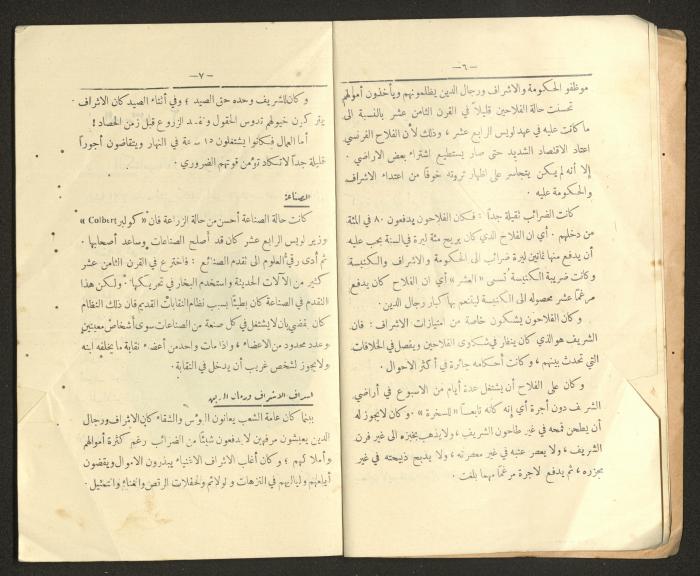 —٦—
موظفو الحكومة والاشراف ورجال الدين يظلمونهم ويأخذون أموالهم
تحسنت حالة الفلاحين قليلاً في القرن الثامن عشر بالنسبة الى
ما كانت عليه في عهد لويس الرابع عشر ، وذلك لأن الفلاح الفرنسي
اعتاد الاقتصاد الشديد حتى صار يستطيع اشتراء بعض الاراضي .
إلا أنه لم يكن يتجاسر على اظهار ثروته خوفًا من اعتداء الاشراف
والحكومة عليه .
كانت الضرائب ثقيلة جداً : فكان الفلاحون يدفعون ٨٠ في المئة
من دخلهم . أي ان الفلاح الذي كان يربح مئة ليرة في السنة يجب عليه
أن يدفع منها ثمانين ليرة ضرائب الى الحكومة والاشراف والكنيسة.
وكانت ضريبة الكنيسة تسمى « العشر » أي ان الفلاح كان يدفع
مرغمًا عشر محصوله الى الكنيسة لينعم بها كبار رجال الدين .
وكان الفلاحون يشكون خاصة من امتيازات الاشراف : فان
الشريف هو الذي كان ينظر في شكاوى الفلاحين ويفصل في الخلافات
التي تحدث بينهم ، وكانت أحكامه جائرة في أكثر الاحوال .
وكان على الفلاح أن يشتغل عدة أيام من الاسبوع في أراضي
الشريف دون أجرة أي إنه كانه تابعًا « للسخرة » . وكان لا يجوز له
أن يطحن قمحه في غير طاحون الشريف ، ولا يذهب بخبزه الى غير فرن
الشريف ، ولا يعصر عنبه في غير معصرته ، ولا يذبح ذبيحته في غير
مجزره ، ثم يدفع لاجرة مرغمًا مهما بلغت .
—٧—
وكان للشريف وحده حق الصيد ؛ وفي أثناء الصيد كان الاشراف
يتركون خيولهم تدوس الحقول وتفسد الزروع قبل زمن الحصاد !
أما العمال فكانوا يشتغلون ١٥ ساعة في النهار ويتقاضون أجوراً
قليلة جداً لا تكاد تؤمن قوتهم الضروري .
الصناعة
كانت حالة الصناعة أحسن من حالة الزراعة فان « كولبر Colbert »
وزير لويس الرابع عشر كان قد أصلح الصناعات وساعد أصحابها .
ثم أدى رقي العلوم الى تقدم الصنائع : فاخترع في القرن الثامن عشر
كثير من الآلات الحديثة واستخدم البخار في تحريكها . ولكن هذا
التقدم في الصناعة كان بطيئًا بسبب نظام النقابات القديم فان ذلك النظام
كان يقضي بان لا يشتغل في كل صنعة من الصناعات سوى أشخاص معينين
وعدد محدود من الاعضاء ، واذا مات واحد من أعضاء نقابة ما يخلفه ابنه
ولا يجوز لشخص غريب أن يدخل في النقابة .
اسراف الاشراف ورجال الدين
بينما كان عامة الشعب يعانون البؤس والشقاء كان الاشراف ورجال
الدين يعيشون مرفهين لا يدفعون شيئًا من الضرائب رغم كثرة أموالهم
وأملاكهم ؛ وكان أغلب الاشراف الاغنياء يبذرون الاموال ويقضون
أيامهم ولياليهم في النزهات والولائم والحفلات الرقص والغناء والتمثيل .